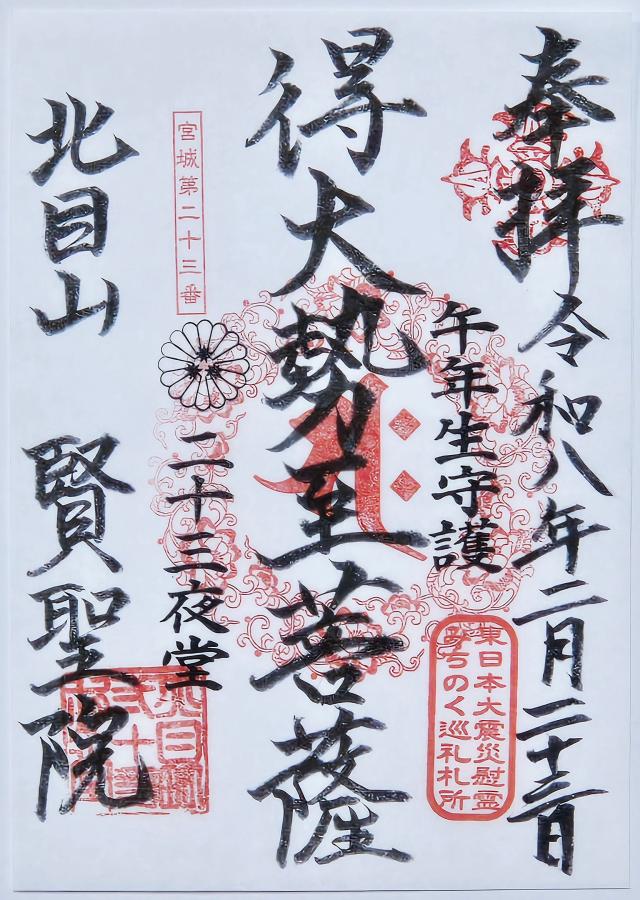 奉拝
令和八年二月二十三日
午年生守護
東日本大震災慰霊
みちのく巡礼札所
得大勢至菩薩
宮城第二十三番
二十三夜堂
北目山
賢聖院